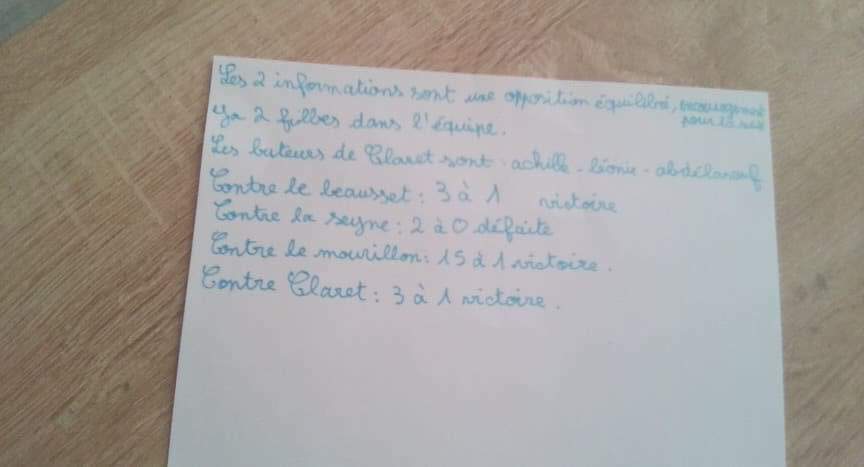 Les 2 informations sont une opposition équilibré, encouragement
pour la suite
Ya 2 filles dans l'équipe.
Les buteurs de Claret sont : achille - léonie - abdélaraouf
Contre le beausset : 3 à 1 victoire
Contre la seyne : 2 à 0 défaite
Contre le mourillon : 15 à 1 victoire.
Contre Claret : 3 à 1 victoire.